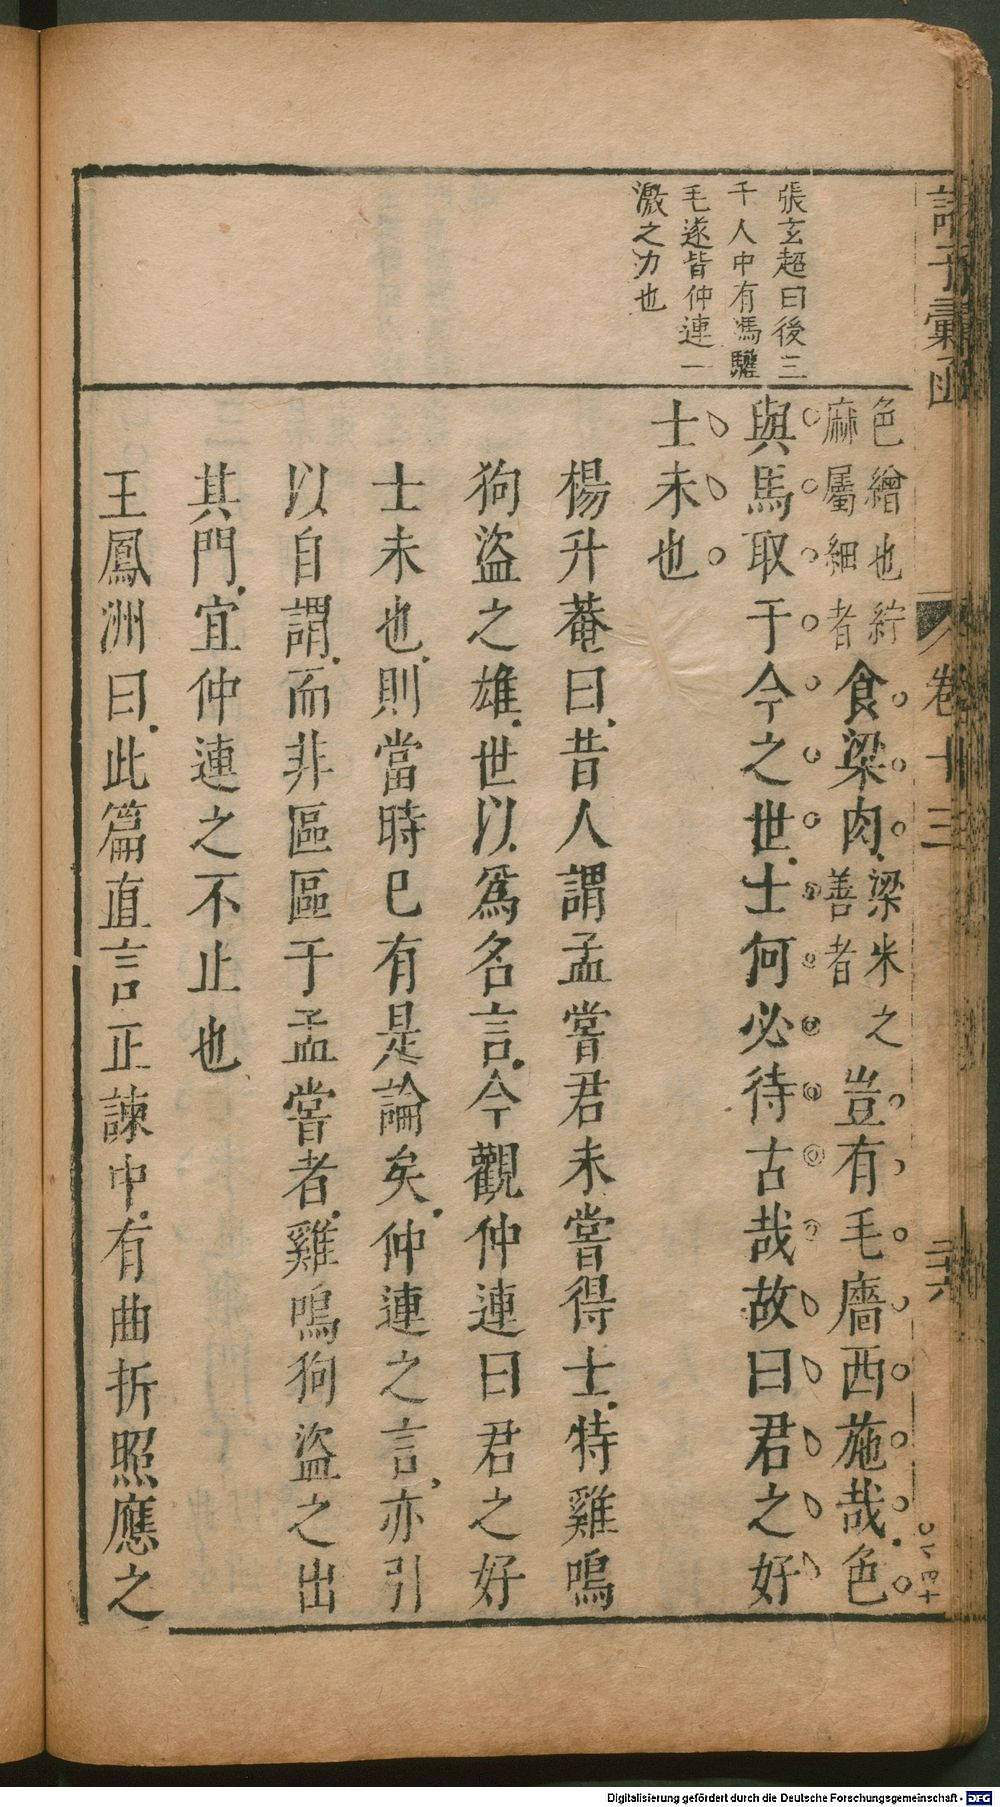 諸子彙函
卷十三
張玄超曰後三
千人中有馮驩
毛遂皆仲連一
激之力也
色繒也紵
麻屬細者
食粱肉
粱米之
善者
豈有毛嬙西施哉色
與馬取于今之世士何必待古哉故曰君之好
士未也
楊升菴曰昔人謂孟嘗君未嘗得士特雞鳴
狗盜之雄世以爲名言今觀仲連曰君之好
士未也則當時已有是論矣仲連之言亦引
以自謂而非區區于孟嘗者雞鳴狗盜之出
其門宜仲連之不止也
王鳳洲曰此篇直言正諫中有曲折照應之
Digitalisierung gefördert durch die Deutsche Forschungsgemeinschaft - DFG